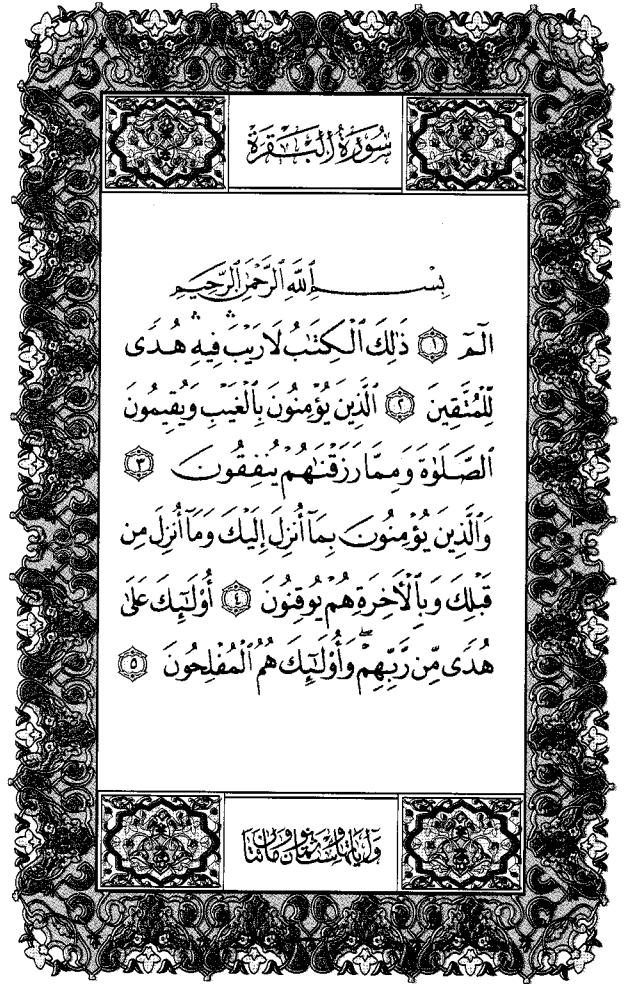 سُورَةُ ٱلْبَقَرَةِ
بِسْمِ ٱللَّهِ ٱلرَّحْمَٰنِ ٱلرَّحِيمِ
الٓمٓ ۝١ ذَٰلِكَ ٱلْكِتَٰبُ لَا رَيْبَ ۛ فِيهِ ۛ هُدًى
لِّلْمُتَّقِينَ ۝٢ ٱلَّذِينَ يُؤْمِنُونَ بِٱلْغَيْبِ وَيُقِيمُونَ
ٱلصَّلَوٰةَ وَمِمَّا رَزَقْنَٰهُمْ يُنفِقُونَ ۝٣
وَٱلَّذِينَ يُؤْمِنُونَ بِمَآ أُنزِلَ إِلَيْكَ وَمَآ أُنزِلَ مِن
قَبْلِكَ وَبِٱلْأَخِرَةِ هُمْ يُوقِنُونَ ۝٤ أُوْلَٰٓئِكَ عَلَىٰ
هُدًى مِّن رَّبِّهِمْ ۖ وَأُوْلَٰٓئِكَ هُمُ ٱلْمُفْلِحُونَ ۝٥
وآياتها ست وثمانون ومائتان